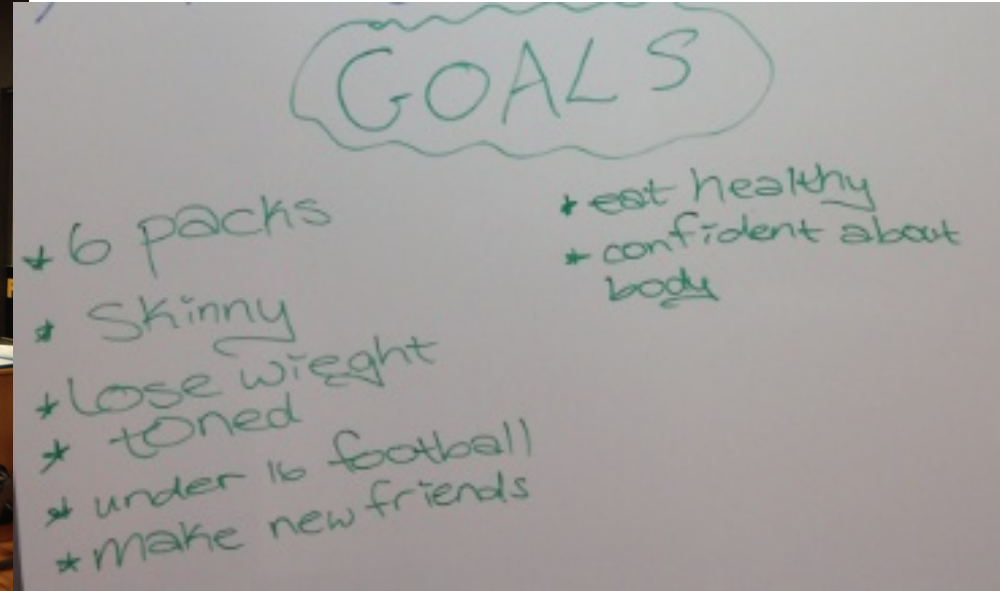 GOALS
* 6 packs
* Skinny
* Lose wieght
* toned
* under 16 football
* Make new friends
* eat healthy
* confident about
body